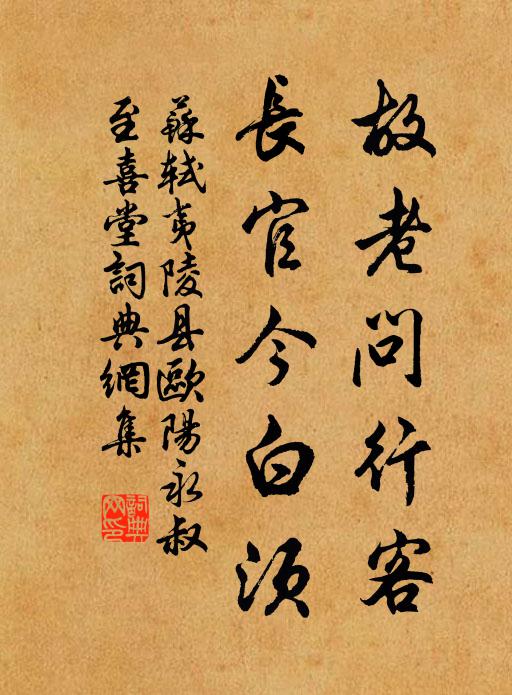 故老問行客
長官今白須
蘇軾夷陵县歐陽永叔
至喜堂詞典網集
詞典網印